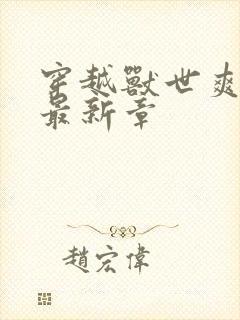 穿越獸世爽
最新章
趙宏偉